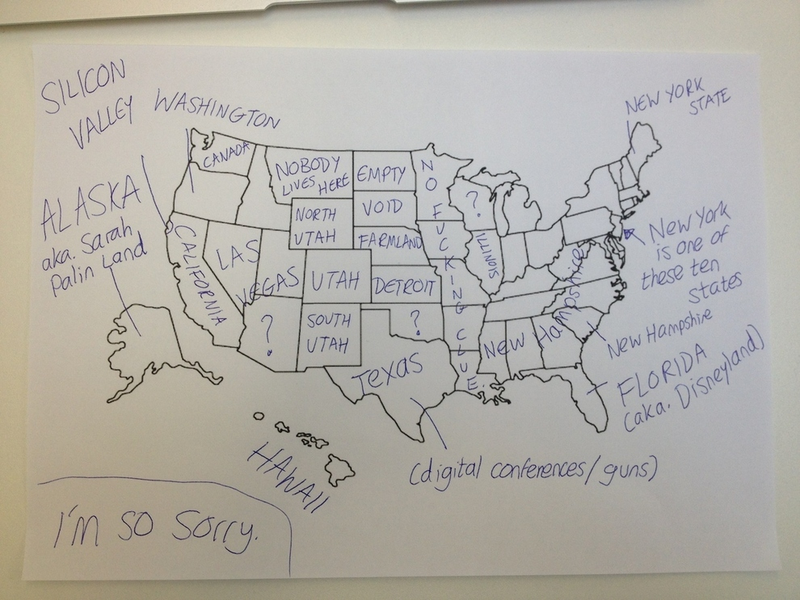 SILICON
VALLEY
WASHINGTON
NEW YORK
STATE
CANADA
NOBODY
LIVES HERE
EMPTY
NO FUCKING CLUE.
?
ALASKA
aka. Sarah
Palin Land
NORTH
UTAH
VOID
FARMLAND
CALIFORNIA
LAS
VEGAS
UTAH
DETROIT
ILLINOIS
New York
is one of
these ten
states
?
SOUTH
UTAH
?
New Hampshire
New Hampshire
Texas
FLORIDA
(aka. Disneyland)
HAWAII
(digital conferences/guns)
I'm so sorry.